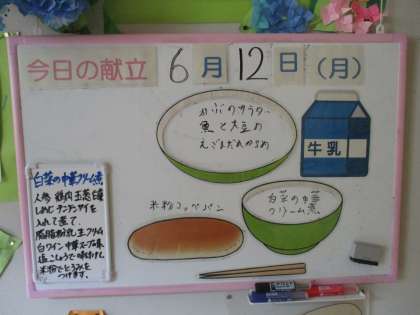 今日の献立 6月12日(月)
かぶのサラダ
魚と大豆の
えごまだれがらめ
牛乳
米粉コッペパン
白菜の中華
クリーム煮
白菜の中華クリーム煮
人参 鶏肉 玉葱 白菜
しめじ チンゲンサイを
入れて煮て、
脱脂粉乳 生クリーム
白ワイン 中華スープの素
塩こしょうで味付けし
米粉でとろみを
つけます。